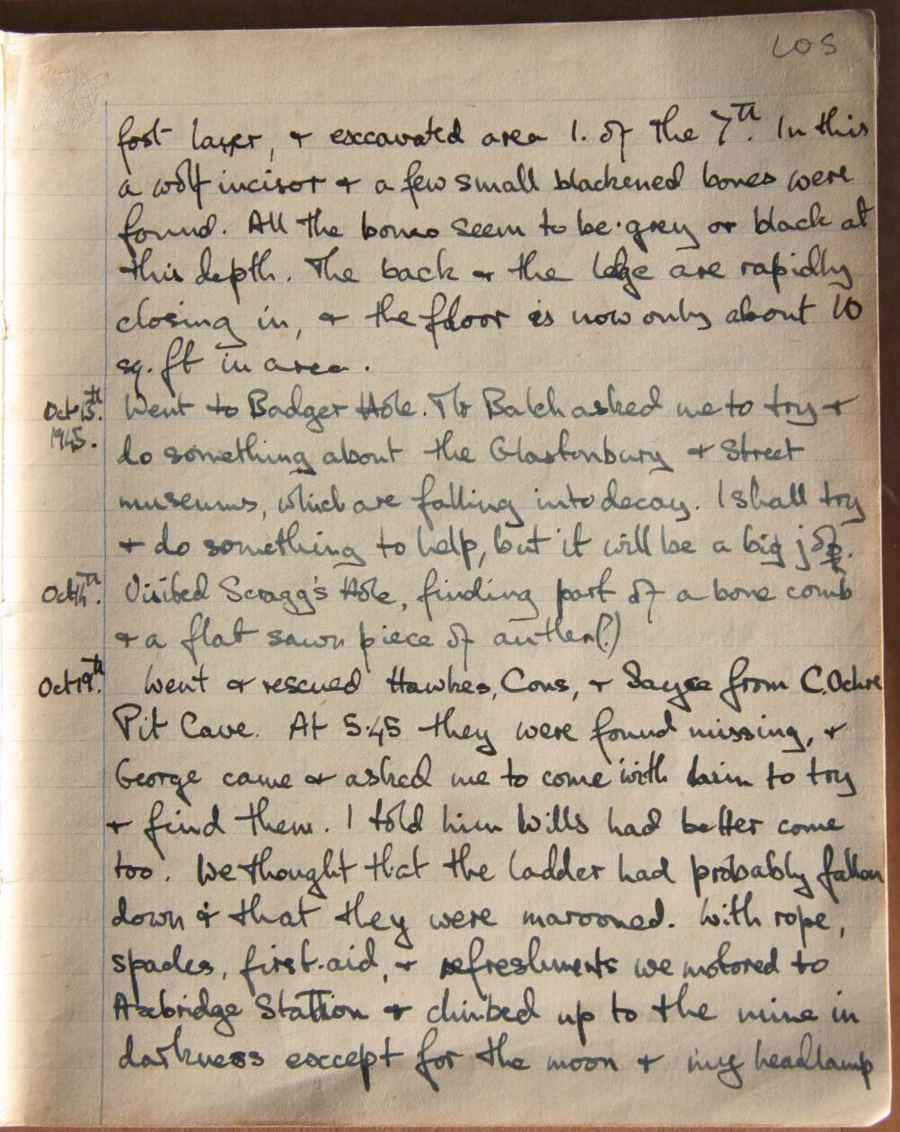 105
foot layer, & excavated area 1. of the 7th. In this
a wolf incisor & a few small blackened bones were
found. All the bones seem to be grey or black at
this depth. The back & the ledge are rapidly
closing in, & the floor is now only about 10
sq. ft in area.
Oct 13th. 1945. Went to Badger Hole. Mr Balch asked me to try &
do something about the Glastonbury & Street
museums, which are falling into decay. I shall try
& do something to help, but it will be a big job.
Oct 14th. Visited Scragg's Hole, finding part of a bone comb
& a flat sawn piece of antler(?)
Oct 19th. Went & rescued Hawkes, Cons, & Sayce from C. Ochre
Pit Cave. At 5.45 they were found missing, &
George came & asked me to come with him to try
& find them. I told him Wills had better come
too. We thought that the ladder had probably fallen
down & that they were marooned. With rope,
spades, first-aid, & refreshments we motored to
Axbridge Station & climbed up to the mine in
darkness except for the moon & my headlamp